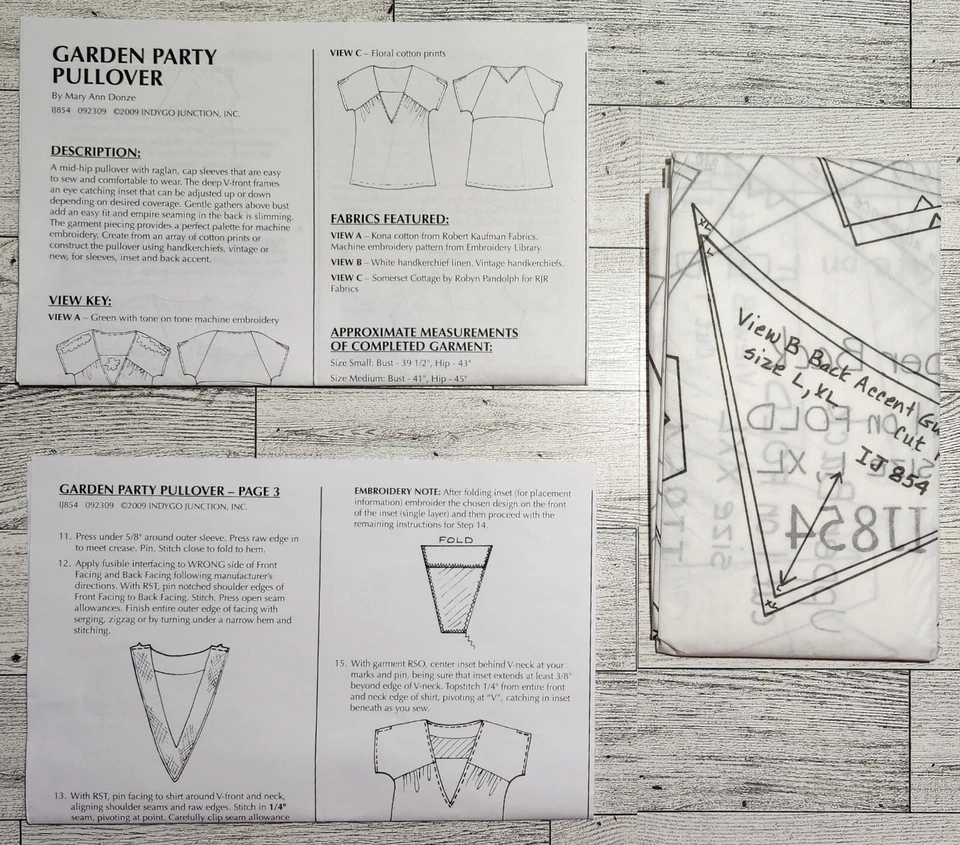 GARDEN PARTY
PULLOVER
By Mary Ann Donze
IJ854 092309 ©2009 INDYGO JUNCTION, INC.
DESCRIPTION:
A mid-hip pullover with raglan, cap sleeves that are easy
to sew and comfortable to wear. The deep V-front frames
an eye catching inset that can be adjusted up or down
depending on desired coverage. Gentle gathers above bust
add an easy fit and empire seaming in the back is slimming.
The garment piecing provides a perfect palette for machine
embroidery. Create from an array of cotton prints or
construct the pullover using handkerchiefs, vintage or
new, for sleeves, inset and back accent.
VIEW KEY:
VIEW A – Green with tone on tone machine embroidery
VIEW C – Floral cotton prints
FABRICS FEATURED:
VIEW A – Kona cotton from Robert Kaufman Fabrics.
Machine embroidery pattern from Embroidery Library.
VIEW B – White handkerchief linen. Vintage handkerchiefs.
VIEW C – Somerset Cottage by Robyn Pandolph for RJR
Fabrics
APPROXIMATE MEASUREMENTS
OF COMPLETED GARMENT:
Size Small: Bust - 39 1/2", Hip - 43"
Size Medium: Bust - 41", Hip - 45"
GARDEN PARTY PULLOVER – PAGE 3
IJ854 092309 ©2009 INDYGO JUNCTION, INC.
11. Press under 5/8" around outer sleeve. Press raw edge in
to meet crease. Pin. Stitch close to fold to hem.
12. Apply fusible interfacing to WRONG side of Front
Facing and Back Facing following manufacturer's
directions. With RST, pin notched shoulder edges of
Front Facing to Back Facing. Stitch. Press open seam
allowances. Finish entire outer edge of facing with
serging, zigzag or by turning under a narrow hem and
stitching.
13. With RST, pin facing to shirt around V-front and neck,
aligning shoulder seams and raw edges. Stitch in 1/4"
seam, pivoting at point. Carefully clip seam allowance
EMBROIDERY NOTE: After folding inset (for placement
information) embroider the chosen design on the front
of the inset (single layer) and then proceed with the
remaining instructions for Step 14.
FOLD
15. With garment RSO, center inset behind V-neck at your
marks and pin, being sure that inset extends at least 3/8"
beyond edge of V-neck. Topstitch 1/4" from entire front
and neck edge of shirt, pivoting at "V", catching in inset
beneath as you sew.
XL
L
View B Back Accent Gu
size L, XL
Cut 1
IJ 854
per Back
on FOLD
L, XL
IJ854
L
XL